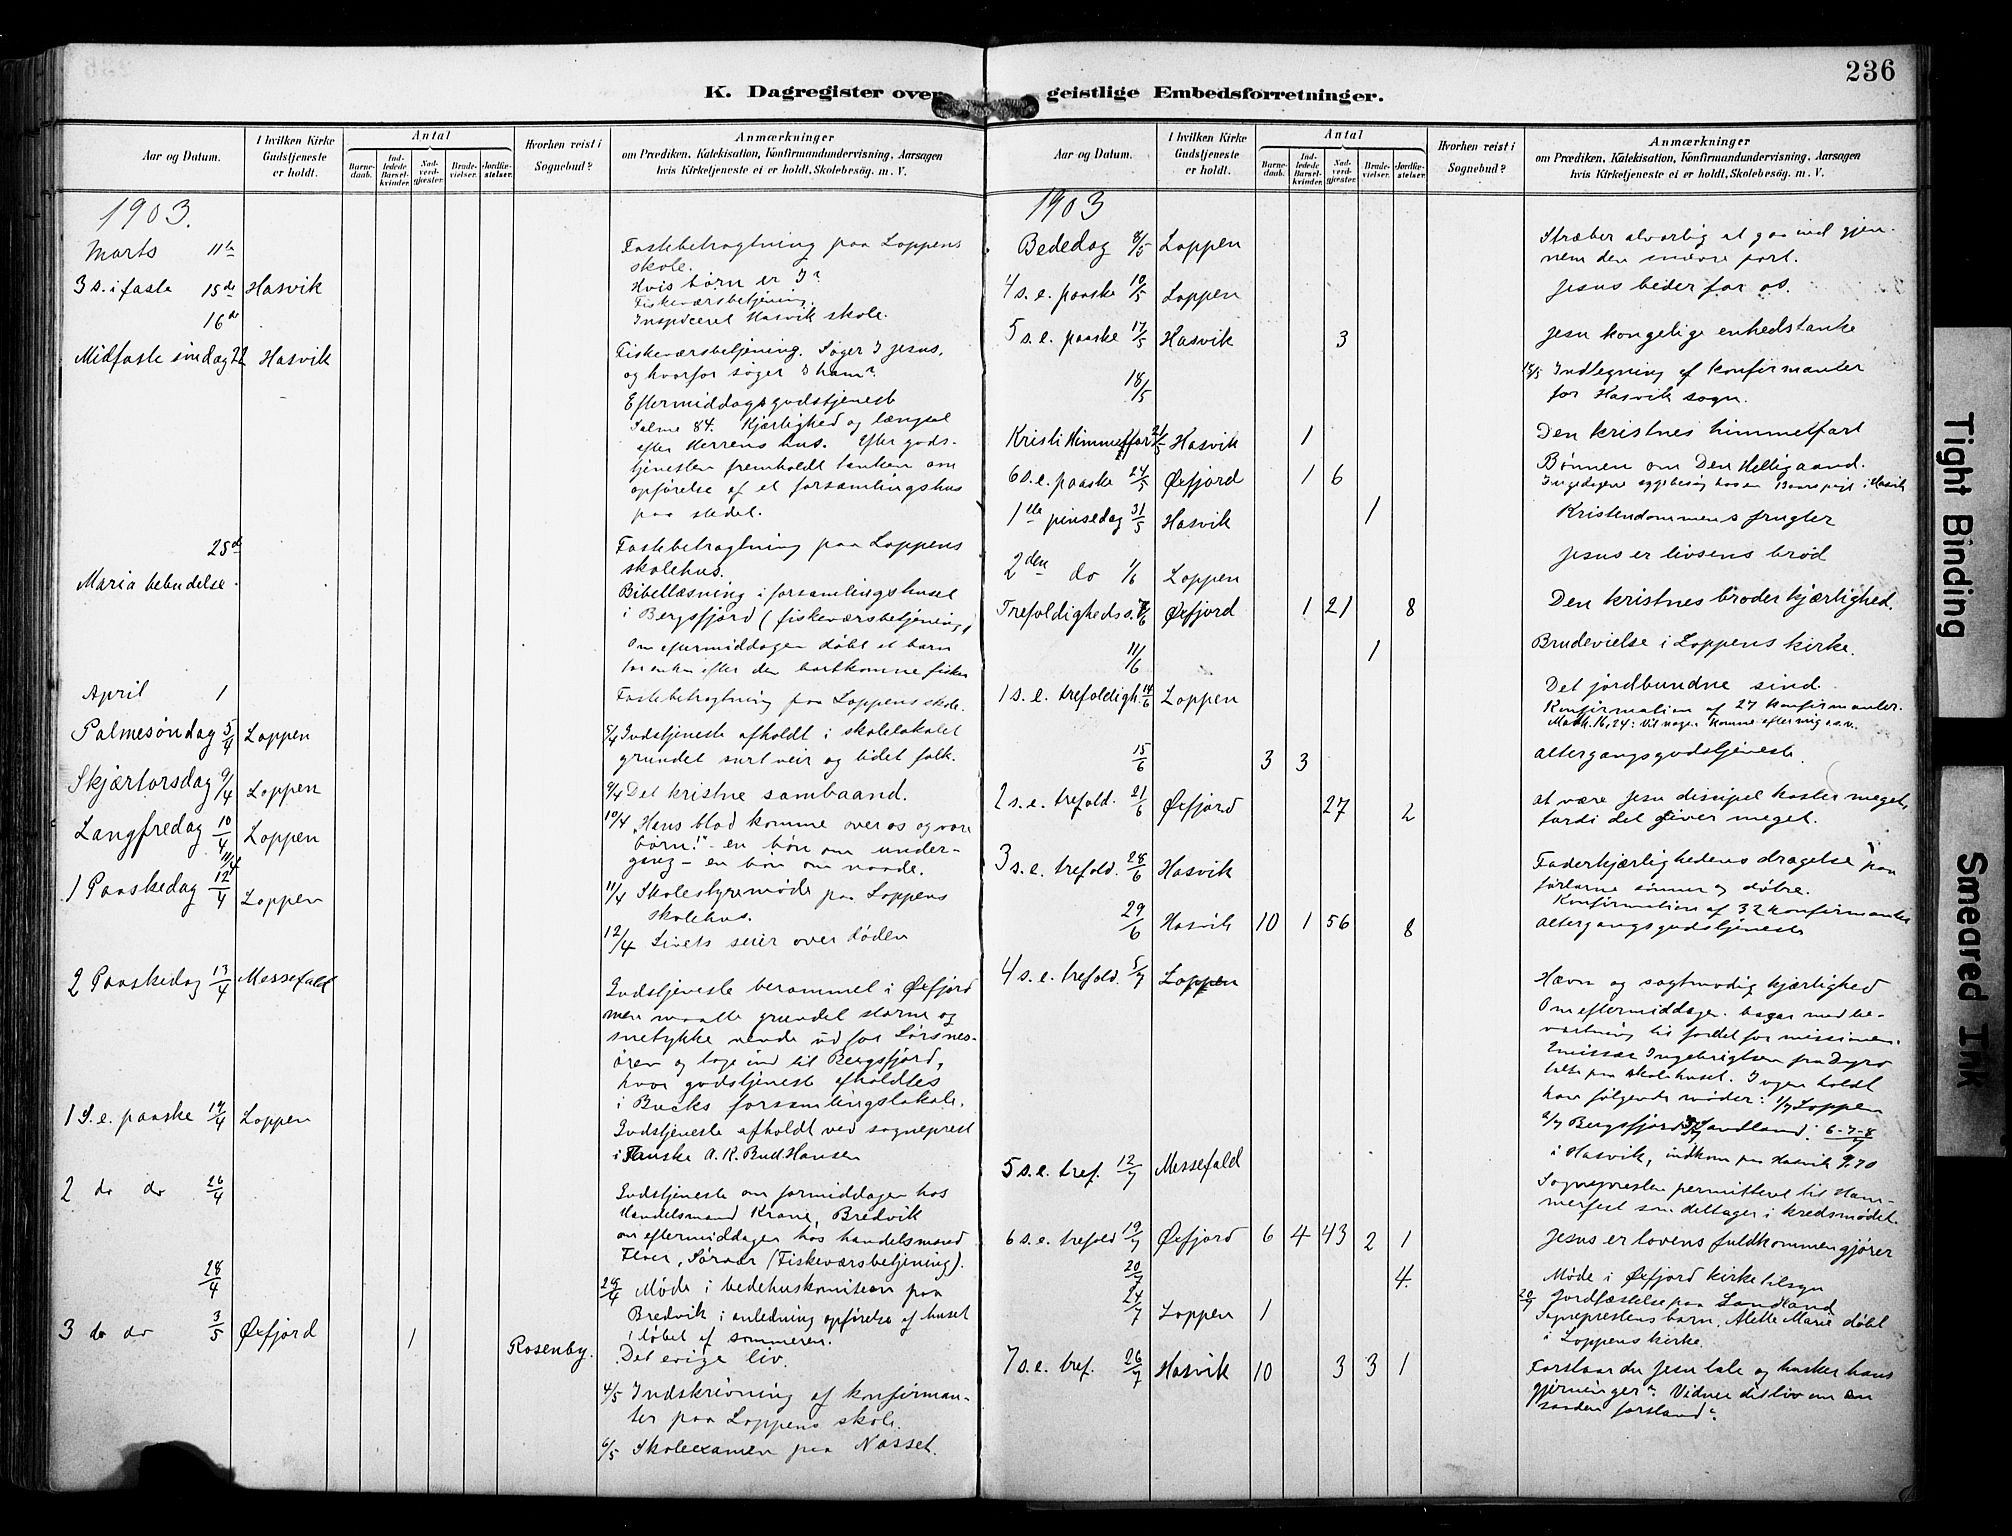 236
K. Dagregister over geistlige Embedsforretninger.
Aar og Datum.
I hvilken Kirke Gudstjeneste er holdt.
Antal
Barnedaab.
Indledede Barselkvinder.
Nadverdgjester.
Brudevielser.
Jordfæstelser.
Hvorhen reist i Sognebud?
Anmærkninger
om Prædiken, Katekisation, Konfirmandundervisning, Aarsagen
hvis Kirketjeneste ei er holdt, Skolebesøg. m. V.
1903.
Marts 11te
Fastebetragtning paa Loppens
skole.
3 s. i faste 15de Hasvik
Hvis børn er I?
Fiskeværsbetjening.
16de
Inspiceret Hasvik skole.
Midfaste søndag 22 Hasvik
Fiskeværsbetjening. Søger I Jesus,
og hvorfor søger I ham?
Eftermiddagsgudstjeneste
Salme 84. Kjærlighed og længsel
efter Herrens hus. Efter guds-
tjenesten fremholdt tanken om
opførelse af et forsamlingshus
paa stedet.
25de
Fastebetragtning paa Loppens
skolehus.
Maria bebudelse.
Bibellæsning i forsamlingshuset
i Bergsfjord (fiskeværsbetjening)
Om eftermiddagen døbt et barn
for enken efter den bortkomne fisker
April 1
Fastebetragtning paa Loppens skole.
Palmesøndag 5/4 Loppen
5/4 Gudstjeneste afholdt i skolelokalet
grundet surt veir og lidet folk.
Skjærtorsdag 9/4 Loppen
9/4 Det kristne sambaand.
Langfredag 10/4 Loppen
10/4 "Hans blod komme over os og vore
børn!" - en bøn om under-
gang - en bøn om naade.
11/4
1 Paaskedag 12/4 Loppen
11/4 Skolestyremøde paa Loppens
skolehus.
12/4 Livets seier over døden
2 Paaskedag 13/4 Messefald
Gudstjeneste berammet i Øxfjord
men maatte grundet storm og
snetykke vende ud for Lørsnes-
øren og tage ind til Bergsfjord,
hvor gudstjeneste afholdtes
i Bucks forsamlingslokale.
1 S. e. paaske 19/4 Loppen
Gudstjeneste afholdt ved sogneprest
i Fauske A. R. Bull Hansen
2 do do 26/4
Gudstjeneste om formiddagen hos
Handelsmand Krane, Bredvik
om eftermiddagen hos handelsmand
Floer, Sørvær (Fiskeværsbetjening).
28/4
28/4 Møde i bedehuskomiteen paa
Bredvik i anledning opførelse af huset
i løbet af sommeren.
3 do do 3/5 Øxfjord 1 Rosenby.
Det evige liv.
4/5 Indskrivning af konfirman-
ter paa Loppens skole.
6/5 Skoleexamen paa Næsset.
Aar og Datum.
I hvilken Kirke Gudstjeneste er holdt.
Antal
Barnedaab.
Indledede Barselkvinder.
Nadverdgjester.
Brudevielser.
Jordfæstelser.
Hvorhen reist i Sognebud?
Anmærkninger
om Prædiken, Katekisation, Konfirmandundervisning, Aarsagen
hvis Kirketjeneste ei er holdt, Skolebesøg. m. V.
1903
Bededag 8/5 Loppen
Stræber alvorlig at gaa ind gjen-
nem den snævre port.
4 s. e. paaske 10/5 Loppen
Jesus beder for os.
5 s. e. paaske 17/5 Hasvik 3
Jesu kongelige enhedstanke
18/5
18/5 Indlegning af konfirmanter
for Hasvik sogn.
Kristi Himmelfart 21/5 Hasvik 1
Den kristnes himmelfart
6 s. e. paaske 24/5 Øxfjord 1 6
Bønnen om Den Helligaand.
1ste pinsedag 31/5 Hasvik 1
Kristendommens frugter
2den do 1/6 Loppen
Jesus er livsens brød
Trefoldigheds s. 7/6 Øxfjord 1 21 8
Den kristnes broderkjærlighed.
11/6 1
Brudevielse i Loppens kirke.
1 s. e. trefoldigh. 14/6 Loppen
Det jordbundne sind.
Konfirmation af 27 konfirmanter.
Math. 16, 24: Vil nogen komme efter mig o.s.v.
15/6 3 3
Altergangsgudstjeneste.
2 s. e. trefold. 21/6 Øxfjord 27 2
At være Jesu discipel koster meget,
fordi det giver meget.
3 s. e. trefold. 28/6 Hasvik
Faderkjærlighedens dragelse paa
fortabte sønner og døtre.
Konfirmation af 32 konfirmanter
29/6 Hasvik 10 1 56 8
Altergangsgudstjeneste
4 s. e. trefold. 5/7 Loppen
Hævn og sagtmodig kjærlighed
Om eftermiddagen basar med be-
værtning til fordel for missionen.
Emissær Ingebrigtsen fra Dyrø
talte paa skolehuset. I ugen holdt
han følgende møder: 1/7 Loppen
2/7 Bergsfjord 3/7 Sandland: 6-7-8/7
i Hasvik, indkom paa Hasvik 9.70
5 s. e. tref. 12/7 Messefald
Sognepresten permitteret til Ham-
merfest som deltager i kredsmødet.
6 s. e. trefold 19/7 Øxfjord 6 4 43 2 1
Jesus er lovens fuldkommengjører
20/7 4.
Møde i Øxfjord kirketilsyn
20/7 Jordfæstelse paa Sandland
24/7 Loppen 1
Sogneprestens barn, Alette Marie døbt
i Loppens kirke.
7 s. e. tref. 26/7 Hasvik 10 3 3 1
Forstaar du Jesu tale og husker hans
gjerninger? Vidner dit liv om en
saadan forstand?
Tight Binding
Smeared Ink